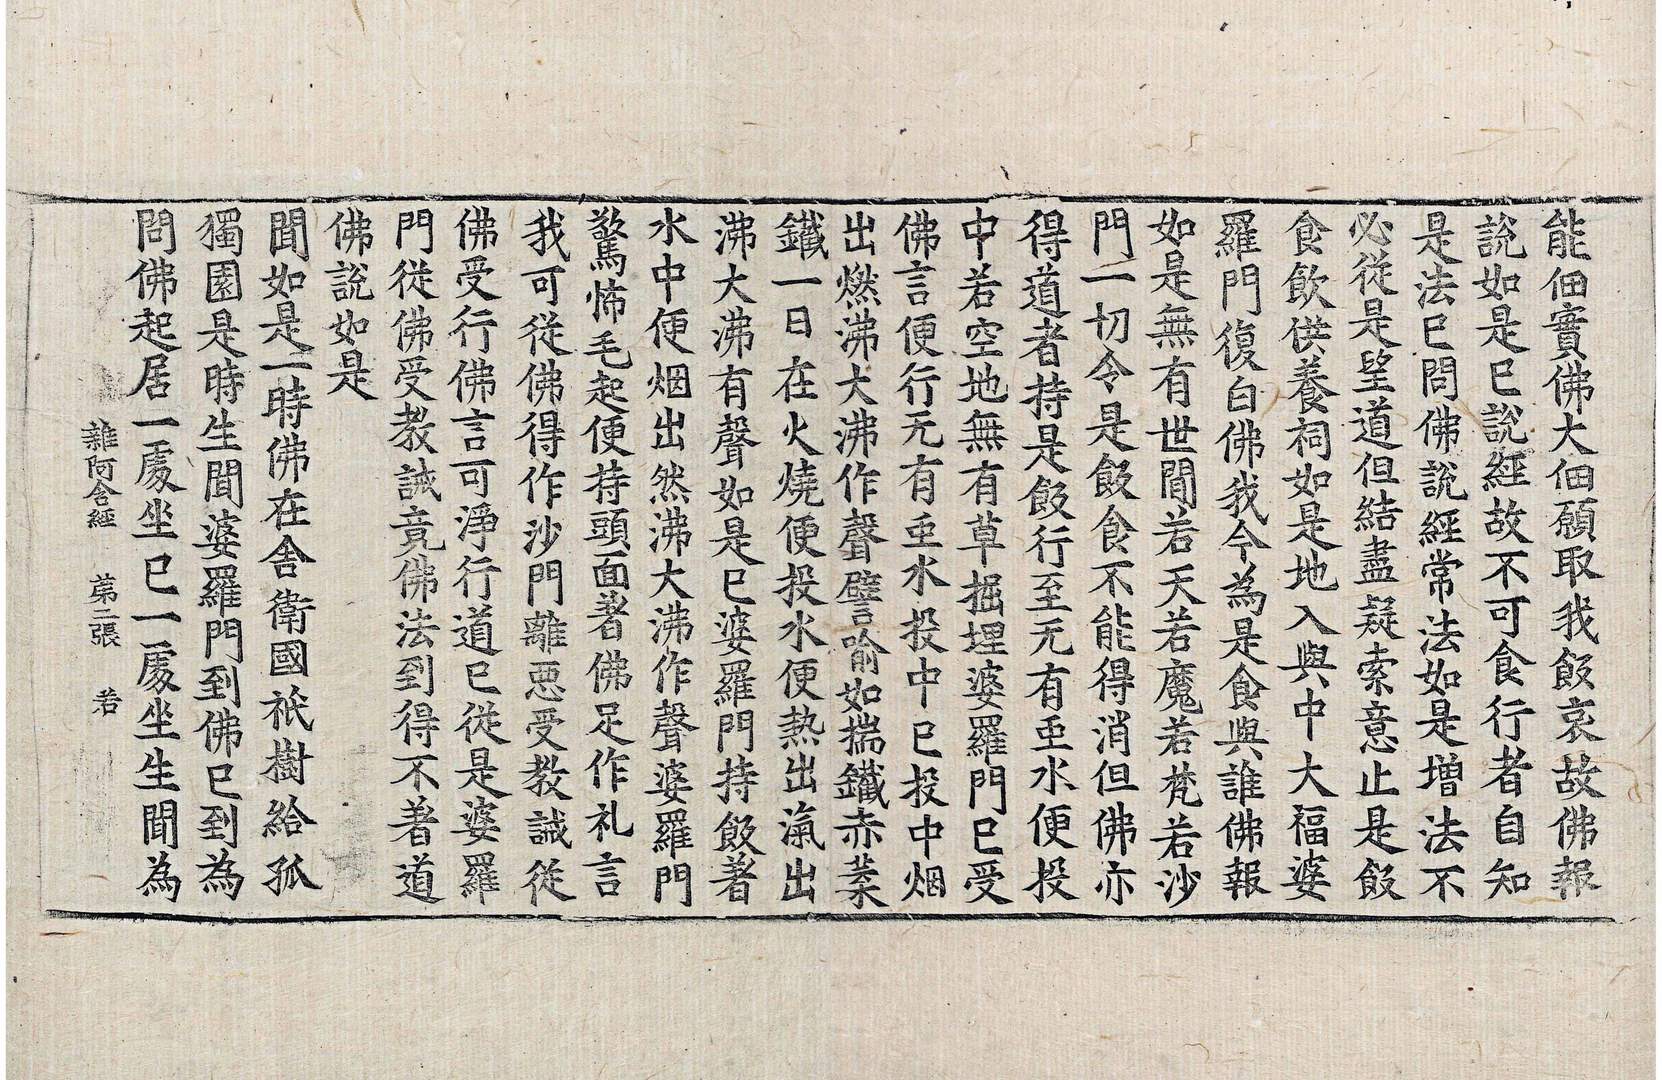 能佃實佛大佃願取我飯哀故佛報
說如是已說經故不可食行者自知
是法已問佛說經常法如是增法不
必從是望道但結盡疑索意止是飯
食飲供養祠如是地入與中大福婆
羅門復白佛我今為是食與誰佛報
如是無有世間若天若魔若梵若沙
門一切令是飯食不能得消但佛亦
得道者持是飯行至无有虫水便投
中若空地無有草掘埋婆羅門已受
佛言便行无有虫水投中已投中烟
出燃沸大沸作聲譬喻如揣鐵赤葉
鐵一日在火燒便投水便熱出滊出
沸大沸有聲如是已婆羅門持飯著
水中便烟出然沸大沸作聲婆羅門
驚怖毛起便持頭面著佛足作礼言
我可從佛得作沙門離惡受教誡從
佛受行佛言可淨行道已從是婆羅
門從佛受教誡竟佛法到得不著道
佛說如是
聞如是一時佛在舍衛國祇樹給孤
獨園是時生聞婆羅門到佛已到為
問佛起居一處坐已一處坐生聞為
雜阿含經 苐二張 若